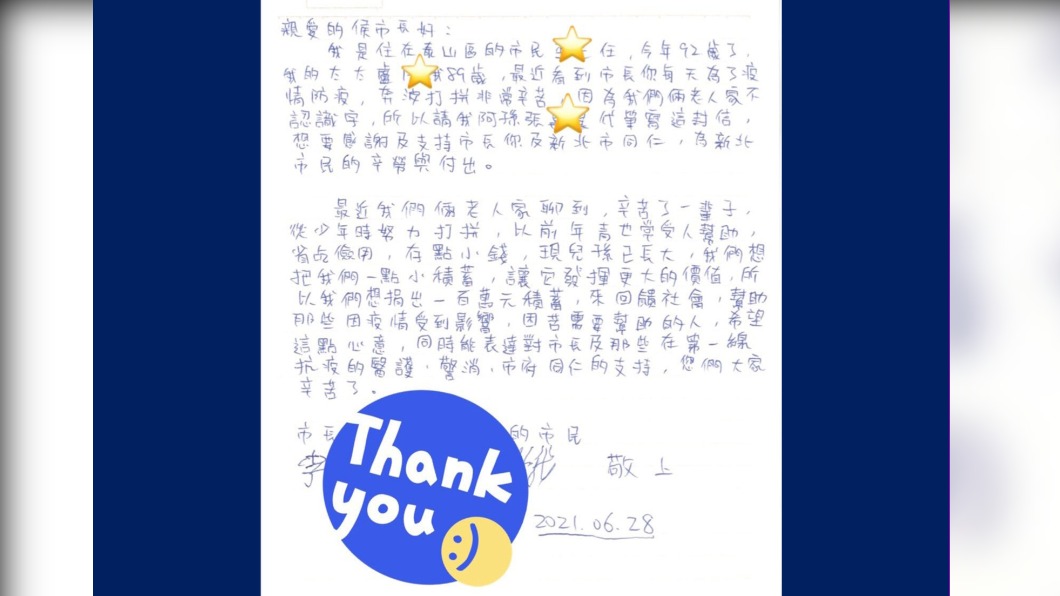 親愛的侯市長好:
我是住在泰山區的市民 任,今年92歲了,
我的太太盧 我89歲,最近看到市長你每天為了疫
情防疫,奔波打拼非常辛苦,因為我們倆老人家不
認識字,所以請我阿孫張 代筆寫這封信,
想要感謝及支持市長你及新北市同仁,為新北
市民的辛勞與付出。
最近我們倆老人家聊到,辛苦了一輩子,
從少年時努力打拼,以前年青也常受人幫助,
省吃儉用,存點小錢,現兒孫已長大,我們想
把我們一點小積蓄,讓它發揮更大的價值,所
以我們想捐出一百萬元積蓄,來回饋社會,幫助
那些因疫情受到影響,困苦需要幫助的人,希望
這點心意,同時能表達對市長及那些在第一線
抗疫的醫護、警消、市府同仁的支持,您們大家
辛苦了。
市長 的市民
李 敬上
Thank
you
2021.06.28